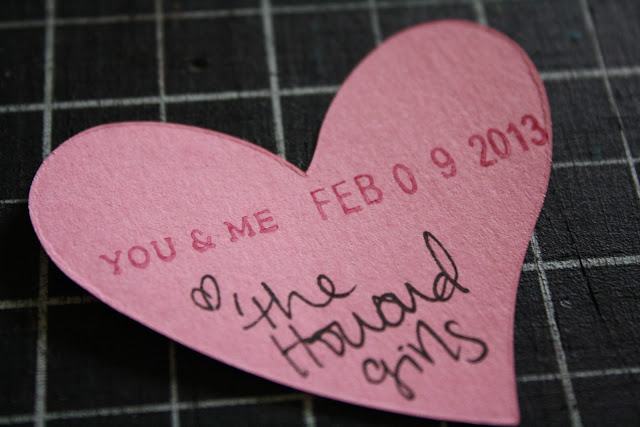 YOU & ME FEB 0 9 2013
♡ the
Howard
girls